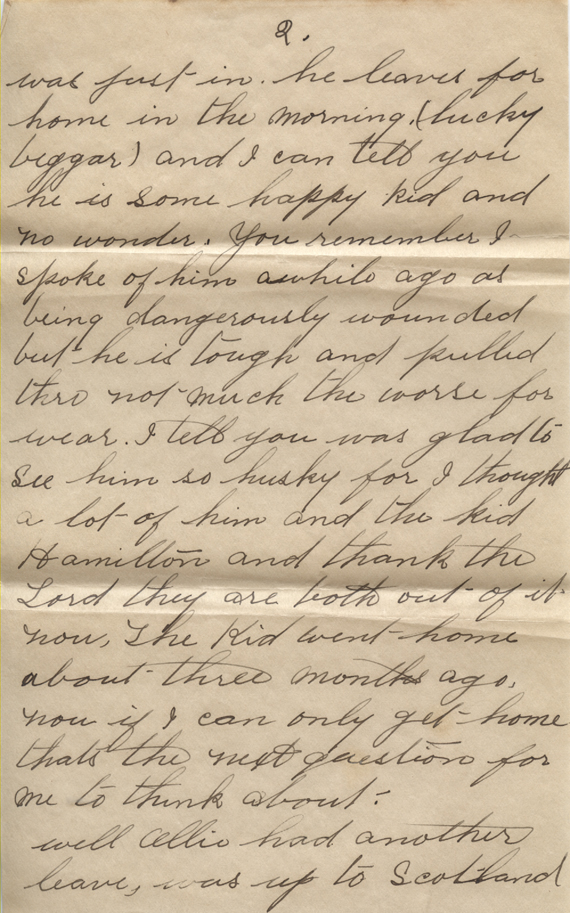 2.
was just in. he leaves for
home in the morning. (lucky
beggar) and I can tell you
he is some happy kid and
no wonder. You remember I
spoke of him awhile ago as
being dangerously wounded
but he is tough and pulled
thro not much the worse for
wear. I tell you was glad to
see him so husky for I thought
a lot of him and the kid
Hamilton and thank the
Lord they are both out of it
now, The Kid went home
about three months ago,
now if I can only get home
thats the next question for
me to think about.
well Ollie had another
leave, was up to Scotland